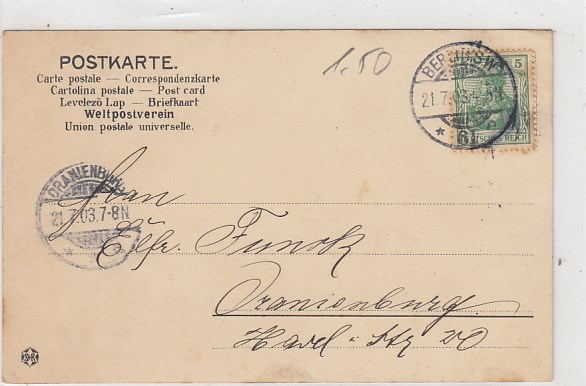 POSTKARTE.
Carte postale — Correspondenzkarte
Cartolina postale — Post card
Levelező Lap — Briefkaart
Weltpostverein
Union postale universelle.
1.50
BERLIN S.W.
21.7.03. 4-5N
* 61
5
DEUTSCHES REICH
ORANIENBURG
21.7.03.7-8N
Frau
Elfr. Funck
Oranienburg
Havel-Str 20